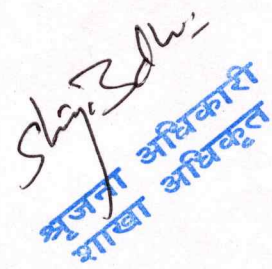 श्रृजना अधिकारी
शाखा अधिकृत